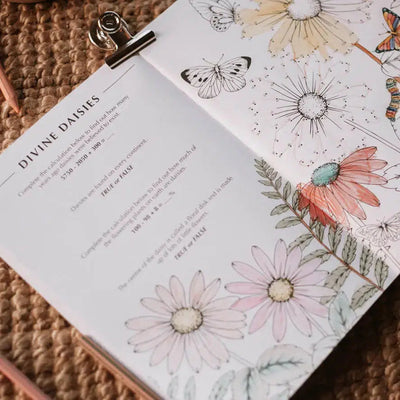 DIVINE DAISIES
Complete the calculation below to find out how many
years ago daisies were believed to exist.
5750 - 2050 + 300 = ......
Daisies are found on every continent.
TRUE or FALSE
Complete the calculation below to find out how much of
the flowering plants on earth are daisies.
100 - 98 + 8 = ...... %
The centre of the daisy is called a floral disk and is made
up of lots of little daisies.
TRUE or FALSE